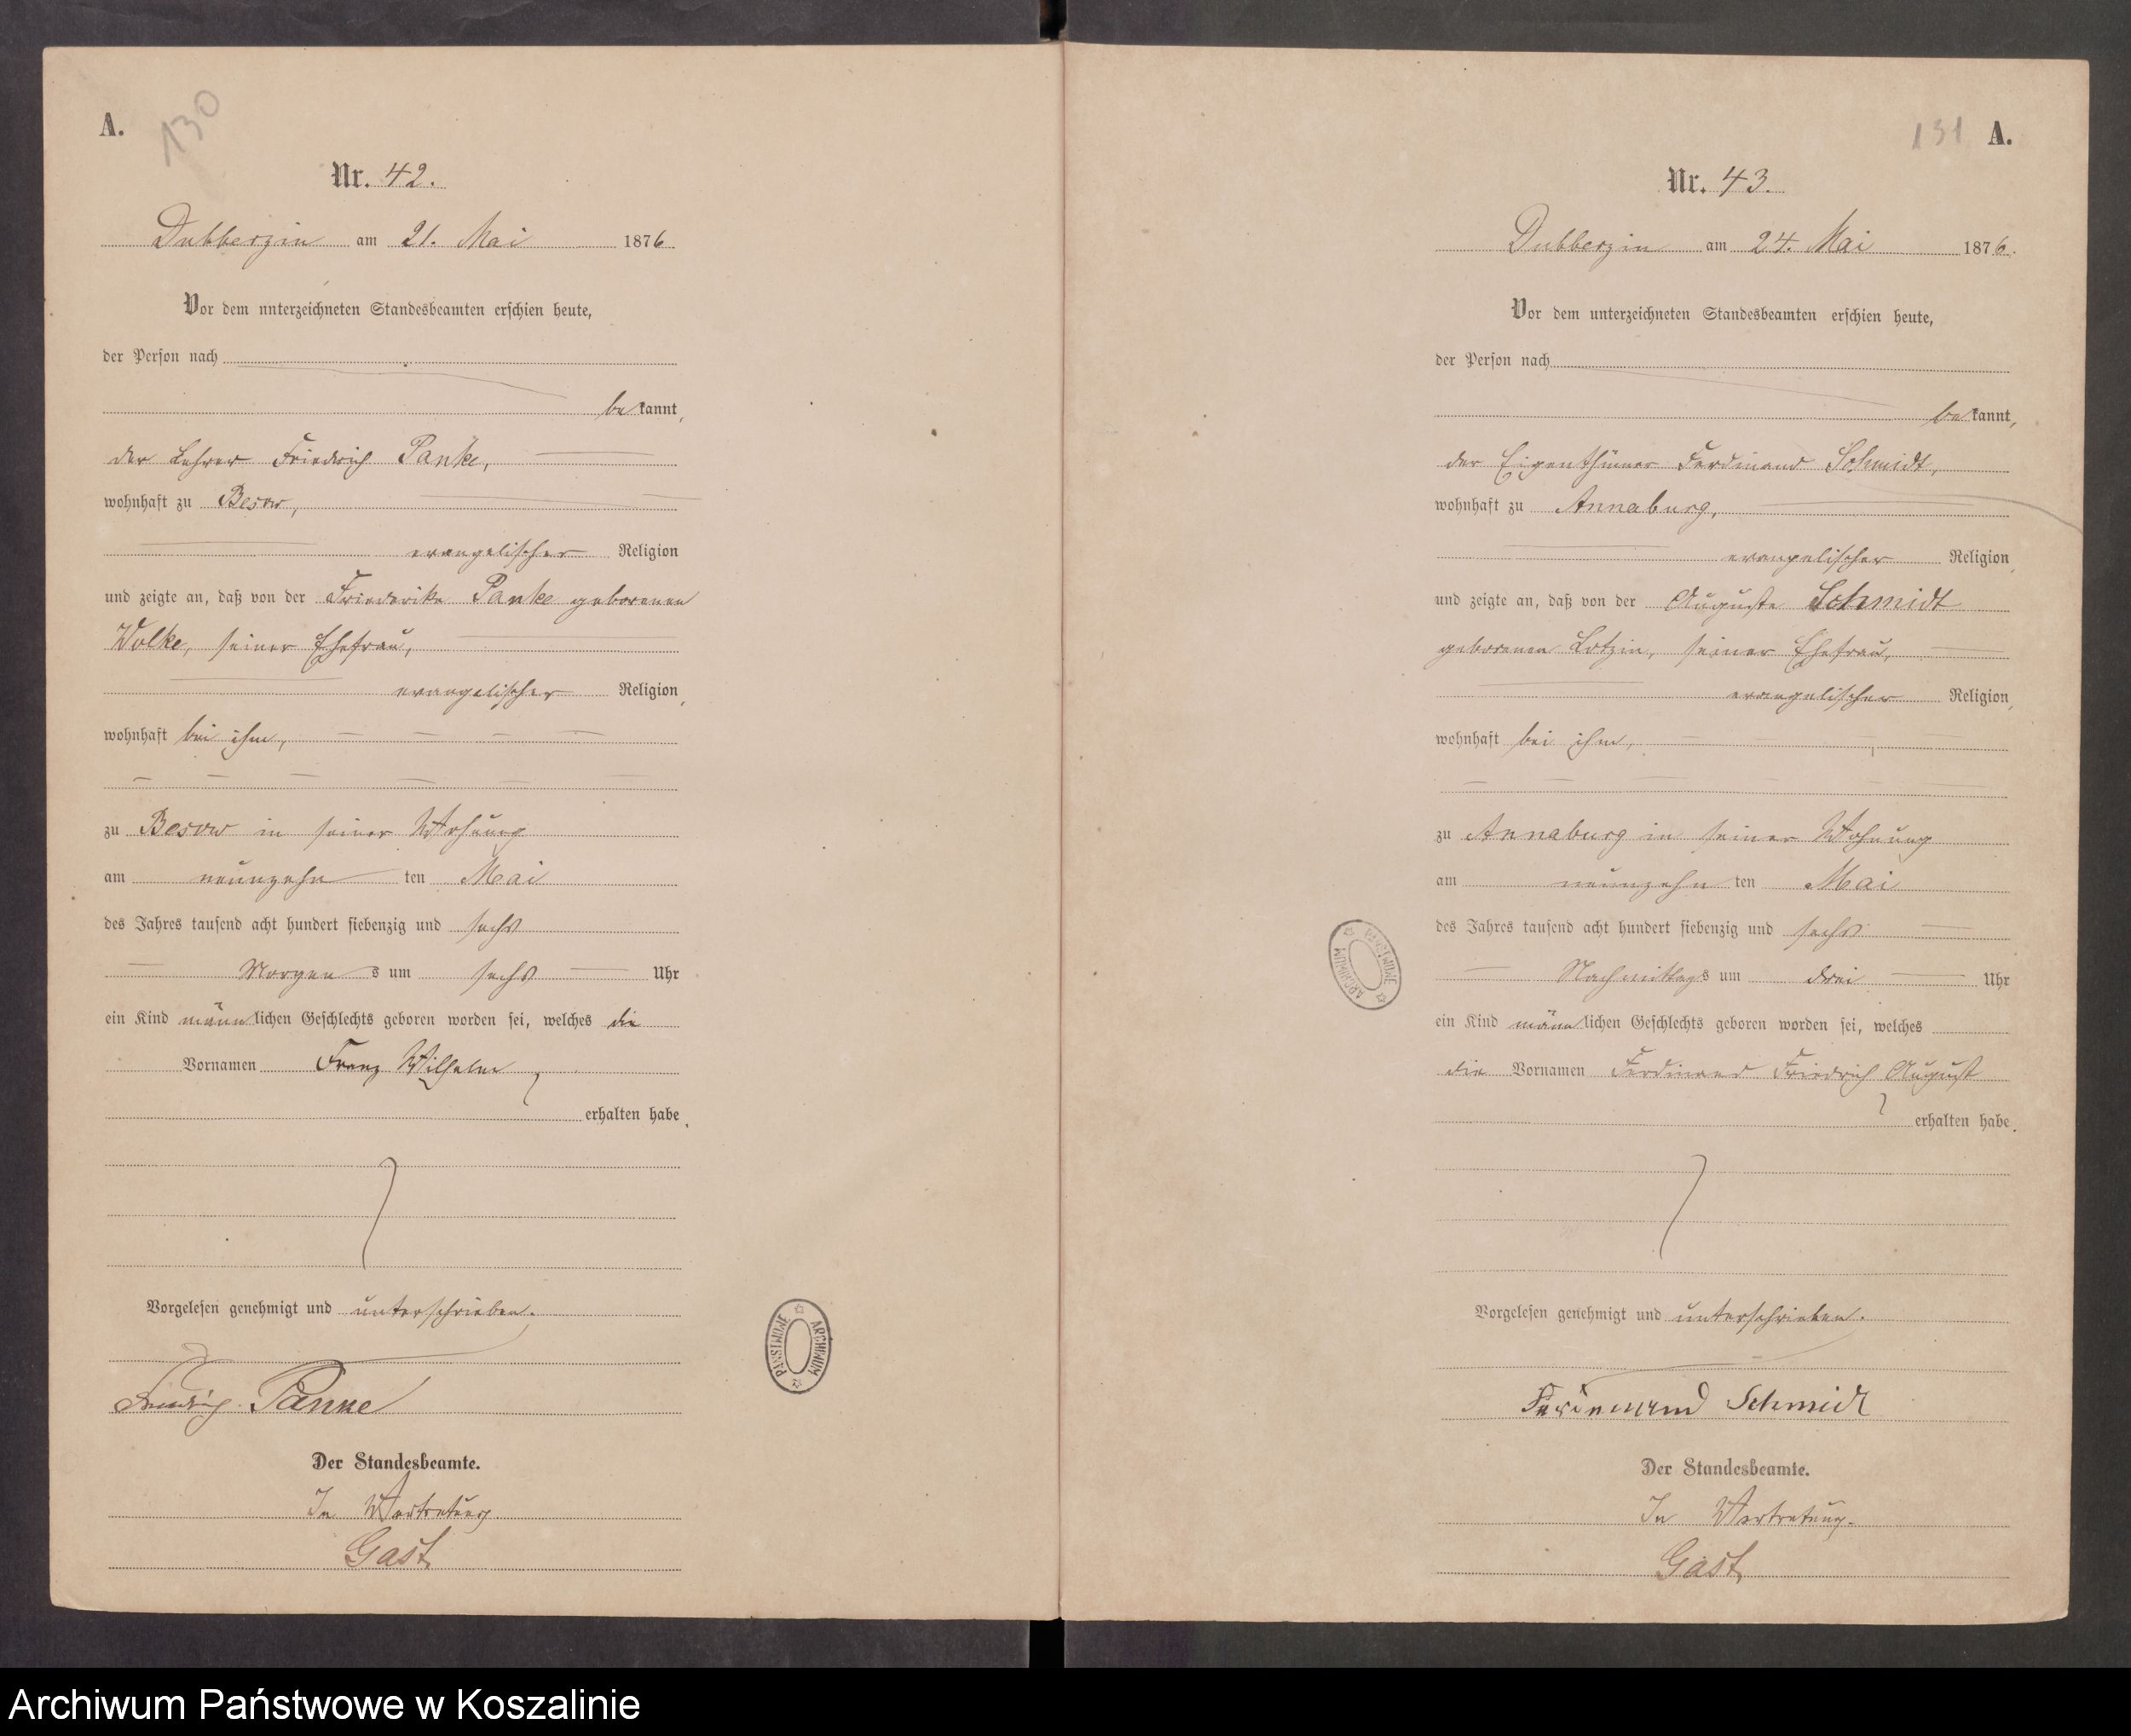 A.
130
Nr. 42.
Dubberzin am 21. Mai 1876
Vor dem nnterzeichneten Standesbeamten erschien heute,
der Person nach
bekannt,
der Lehrer Friedrich Panke,
wohnhaft zu Besow,
evangelischer Religion
und zeigte an, daß von der Friederike Panke geborenen
Wolke, seiner Ehefrau,
evangelischer Religion,
wohnhaft bei ihm,
zu Besow in seiner Wohnung
am neunzehn ten Mai
des Jahres tausend acht hundert siebenzig und sechs
Morgens um sechs Uhr
ein Kind männlichen Geschlechts geboren worden sei, welches die
Vornamen Franz Wilhelm
erhalten habe.
Vorgelesen genehmigt und unterschrieben.
Friedrich Panke
Der Standesbeamte.
In Vertretung.
Gast
ARCHIWUM PAŃSTWOWE
131 A.
Nr. 43.
Dubberzin am 24. Mai 1876.
Vor dem unterzeichneten Standesbeamten erschien heute,
der Person nach
bekannt,
der Eigenthümer Ferdinand Schmidt,
wohnhaft zu Annaburg,
evangelischer Religion,
und zeigte an, daß von der Auguste Schmidt
geborenen Lotzin, seiner Ehefrau,
evangelischer Religion,
wohnhaft bei ihm,
zu Annaburg in seiner Wohnung
am neunzehn ten Mai
des Jahres tausend acht hundert siebenzig und sechs
Nachmittags um drei Uhr
ein Kind männlichen Geschlechts geboren worden sei, welches
die Vornamen Ferdinand Friedrich August
erhalten habe.
Vorgelesen genehmigt und unterschrieben.
Ferdinand Schmidt
Der Standesbeamte.
In Vertretung.
Gast
ARCHIWUM PAŃSTWOWE
Archiwum Państwowe w Koszalinie